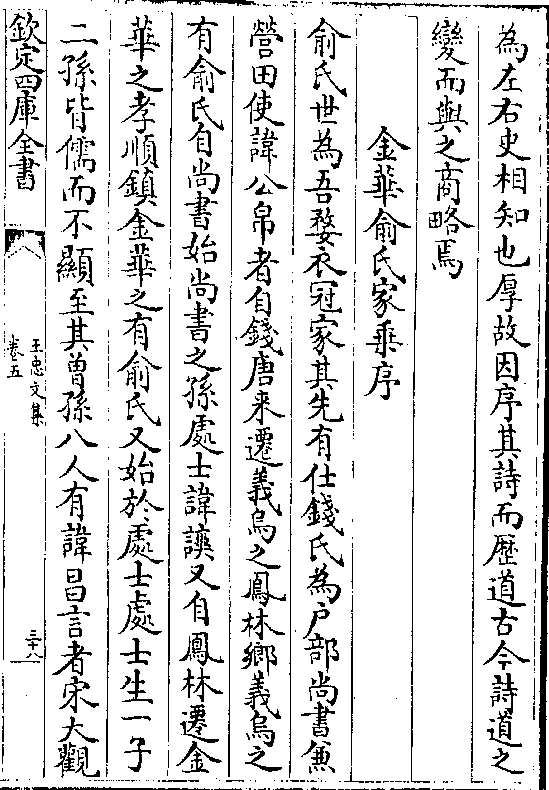 為左右史相知也厚故因序其詩而歷道古今詩道之
變而與之商略焉
金華俞氏家乘序
俞氏世為吾婺衣冠家其先有仕錢氏為户部尚書兼
營田使諱公帛者自錢唐来遷義烏之鳳林鄉義烏之
有俞氏自尚書始尚書之孫處士諱謨又自鳳林遷金
華之孝順鎮金華之有俞氏又始於處士處士生一子
二孫皆儒而不顯至其曽孫八人有諱昌言者宋大觀
欽定四庫全書
王忠文集
卷五
三十八